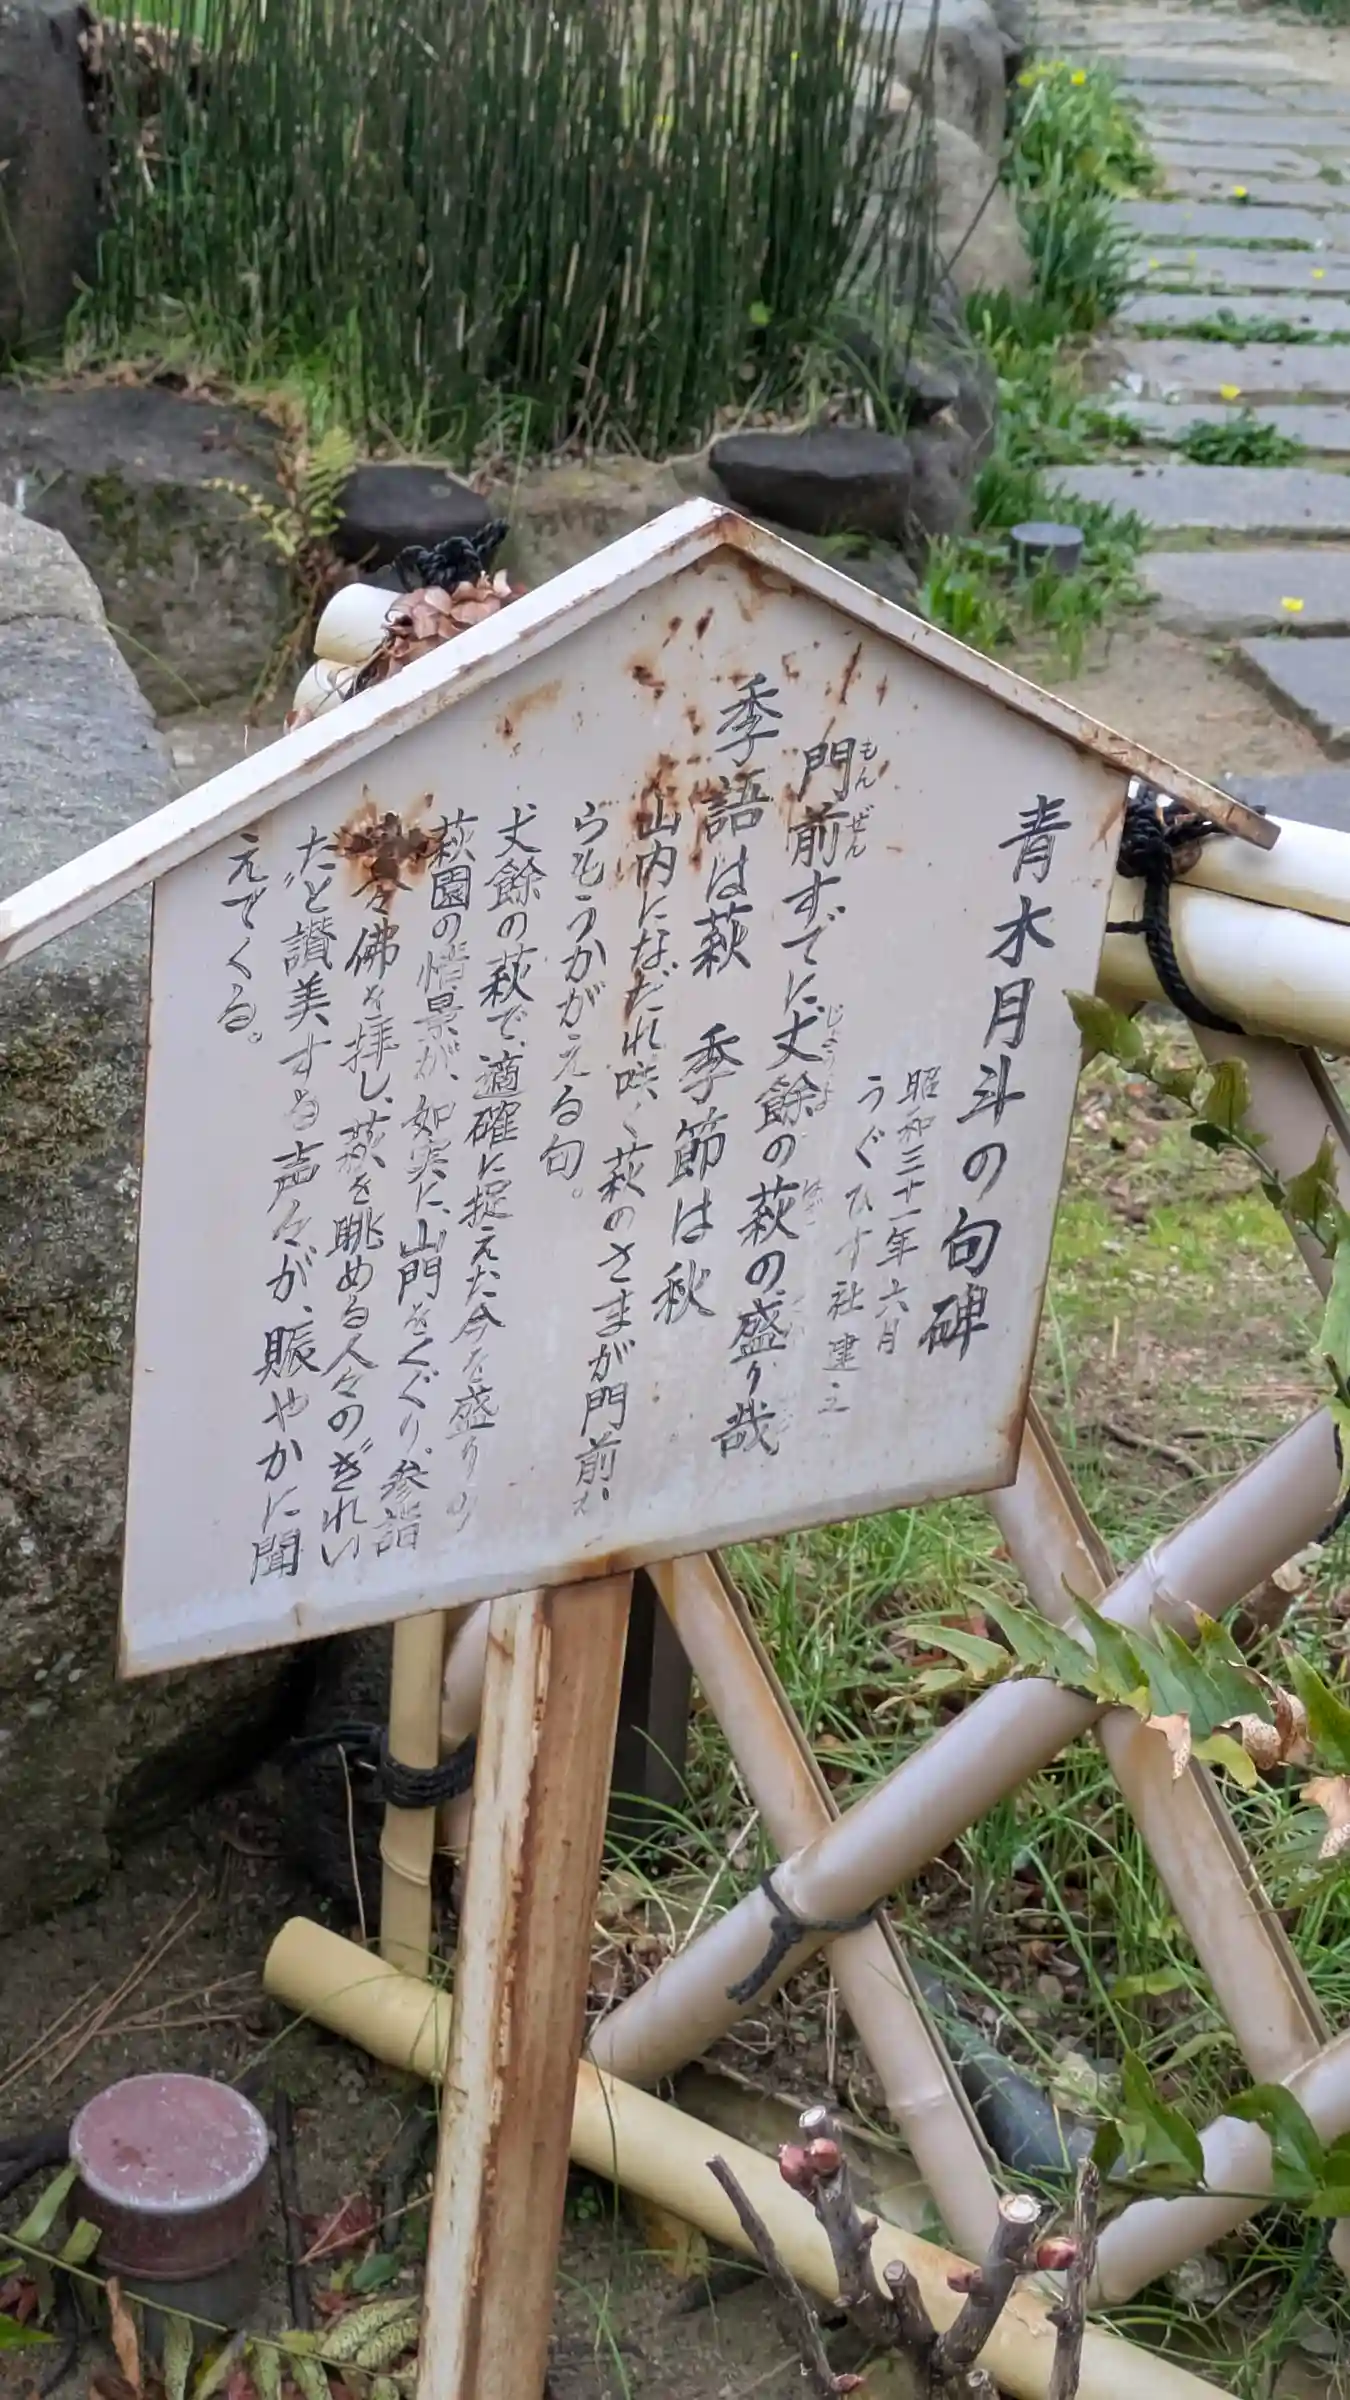 青木月斗の句碑
昭和三十一年六月
うぐひす社建之
門前すでに丈餘の萩の盛り哉
もんぜん じょうよ はぎ
季語は萩 季節は秋
山内になだれ咲く萩のさまが門前か
らもうかがえる句。
丈餘の萩で、適確に捉えた今を盛りの
萩園の情景が、如実に、山門をくぐり、参詣
々佛を拝し、萩を眺める人々のきれい
だと讃美する声々が、賑やかに聞
えてくる。